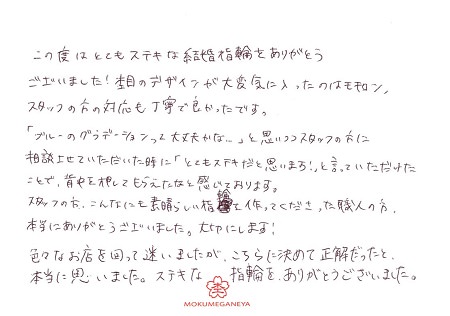 この度はとてもステキな結婚指輪をありがとう
ございました!杢目のデザインが大変気に入ったのはモチロン、
スタッフの方の対応も丁寧で良かったです。
「ブルーのグラデーションって大丈夫かな…」と思いつつスタッフの方に
相談させていただいた時に「とてもステキだと思いますよ!」と言っていただけた
ことで、背中を押してもらえたなと感じております。
スタッフの方、こんなにも素晴らしい指輪を作ってくださった職人の方、
本当にありがとうございました。大切にします!
色々なお店を回って迷いましたが、こちらに決めて正解だったと、
本当に思いました。ステキな 指輪を、ありがとうございました。
MOKUMEGANEYA